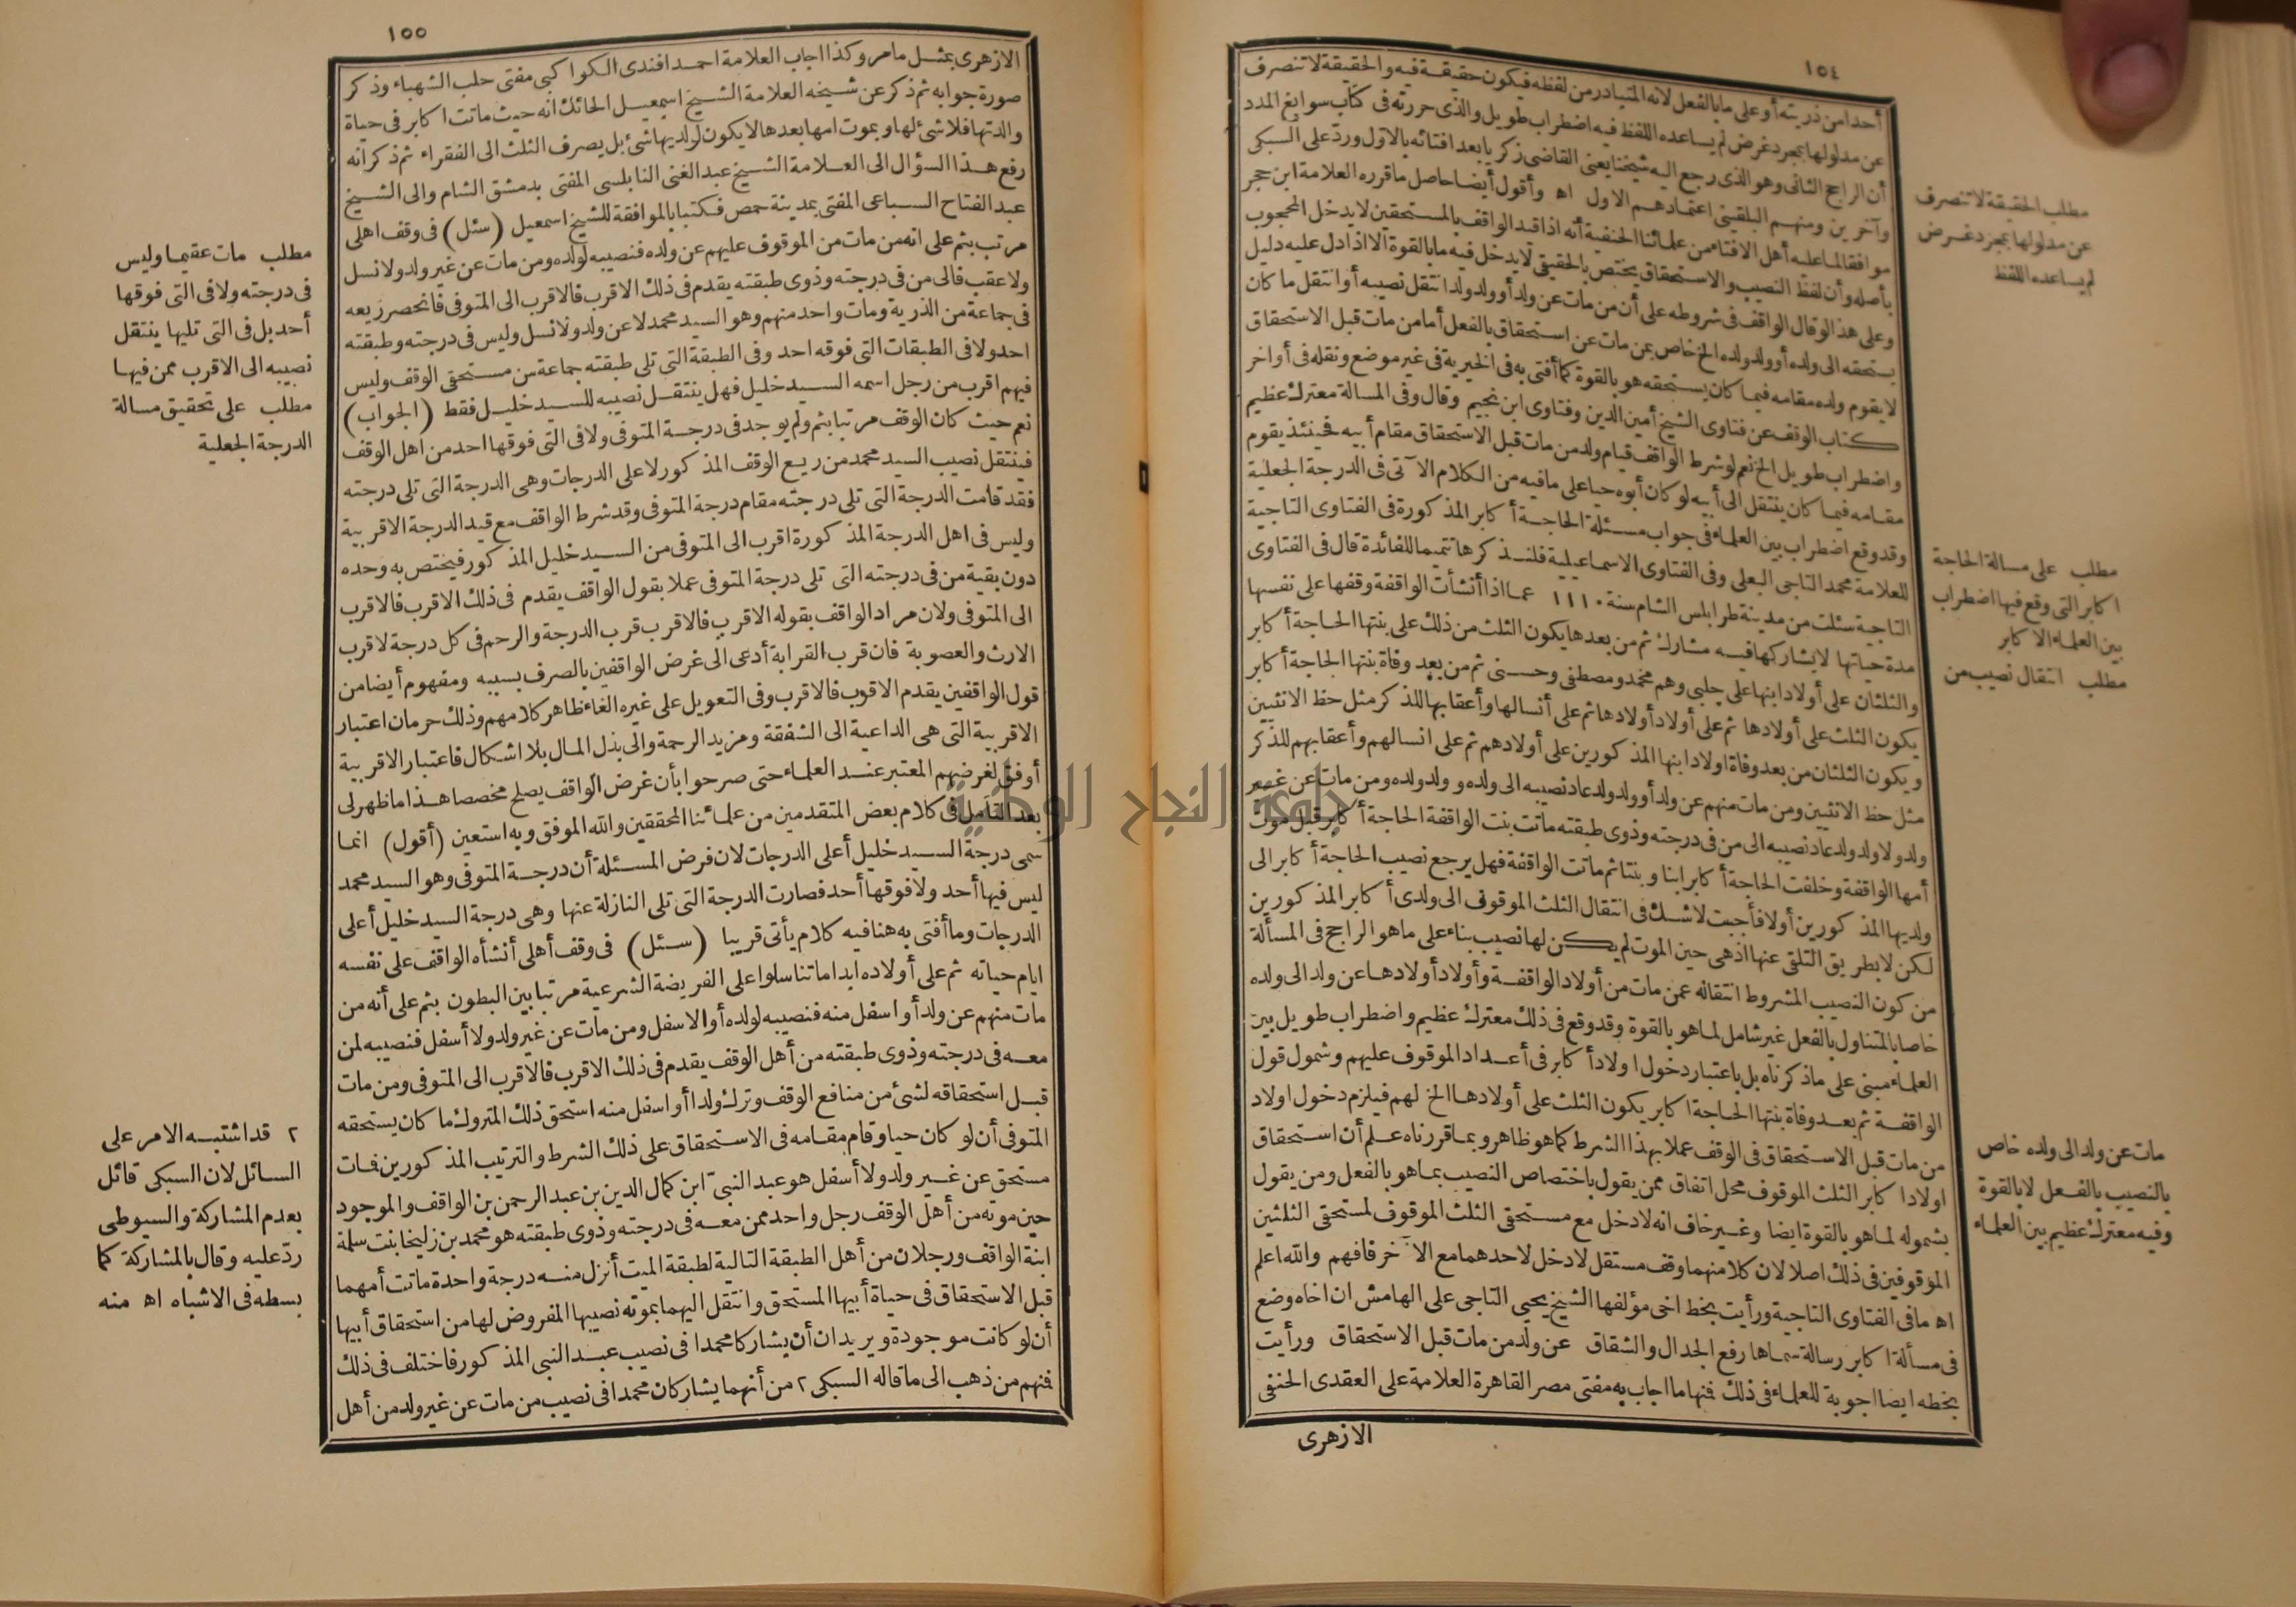 ١٥٤
أحدا من ذريته أو على ما بالفعل لانه المتبادر من لفظه فيكون حقيقة فيه والحقيقة لا تنصرف
عن مدلولها بمجرد غرض لم يساعده اللفظ فيه اضطراب طويل والذى حررته فى كتاب سوابغ المدد
أن الراجح الثانى وهو الذى رجع اليه شيخنا يعنى القاضى زكريا بعد افتائه بالاول ورد على السبكى
وآخرين ومنهم البلقينى اعتمادهم الاول اه وأقول أيضا حاصل ما قرره العلامة ابن حجر
موافقا لما عليه أهل الافتاء من علمائنا الحنفية أنه اذا قيد الواقف بالمستحقين لا يدخل المحجوب
بأصله وأن لفظ النصيب والاستحقاق يختص بالحقيقى لا يدخل فيه ما بالقوة الا اذا دل عليه دليل
وعلى هذا لو قال الواقف فى شروطه على أن من مات عن ولد أو ولد ولد انتقل نصيبه أو انتقل ما كان
يستحقه الى ولده أو ولد ولده الخ خاص بمن مات عن استحقاق بالفعل أما من مات قبل الاستحقاق
لا يقوم ولده مقامه فيما كان يستحقه هو بالقوة كما أفتى به فى الخيرية فى غير موضع ونقله فى أواخر
كتاب الوقف عن فتاوى الشيخ أمين الدين وفتاوى ابن نجيم وقال وفى المسالة معترك عظيم
واضطراب طويل الخ نعم لو شرط الواقف قيام ولد من مات قبل الاستحقاق مقام أبيه فحينئذ يقوم
مقامه فيما كان ينتقل الى أبيه لو كان أبوه حيا على ما فيه من الكلام الآتى فى الدرجة الجعلية
وقد وقع اضطراب بين العلماء فى جواب مسئلة الحاجة أكابر المذكورة فى الفتاوى التاجية
للعلامة محمد التاجى البعلى وفى الفتاوى الاسماعيلية فلنذكرها تتميما للفائدة قال فى الفتاوى
التاجية سئلت من مدينة طرابلس الشام سنة ١١١٠ عما اذا أنشأت الواقفة وقفها على نفسها
مدة حياتها لا يشاركها فيه مشارك ثم من بعدها يكون الثلث من ذلك على بنتها الحاجة أكابر
والثلثان على أولاد ابنها على جلبى وهم محمد ومصطفى وحسنى ثم من بعد وفاة بنتها الحاجة أكابر
يكون الثلث على أولادها ثم على أولاد أولادها ثم على أنسالها وأعقابها للذكر مثل حظ الانثيين
ويكون الثلثان من بعد وفاة اولاد ابنها المذكورين على أولادهم ثم على انسالهم وأعقابهم للذكر
مثل حظ الانثيين ومن مات منهم عن ولد أو ولد ولد عاد نصيبه الى ولده وولد ولده ومن مات عن غير
ولد ولا ولد ولد عاد نصيبه الى من فى درجته وذوى طبقته ماتت بنت الواقفة الحاجة أكابر قبل موت
أمها الواقفة وخلفت الحاجة أكابر ابنا وبنتا ثم ماتت الواقفة فهل يرجع نصيب الحاجة أكابر الى
ولديها المذكورين أولا فأجبت لا شك فى انتقال الثلث الموقوف الى ولدى أكابر المذكورين
لكن لا بطريق التلقى عنها اذ هى حين الموت لم يكن لها نصيب بناء على ما هو الراجح فى المسألة
من كون النصيب المشروط انتقاله عمن مات من أولاد الواقفة وأولاد أولادها عن ولد الى ولده
خاصا بالمتناول بالفعل غير شامل لما هو بالقوة وقد وقع فى ذلك معترك عظيم واضطراب طويل بين
العلماء مبنى على ما ذكرناه بل باعتبار دخول اولاد أكابر فى أعداد الموقوف عليهم وشمول قول
الواقفة ثم بعد وفاة بنتها الحاجة اكابر يكون الثلث على أولادها الخ لهم فيلزم دخول اولاد
من مات قبل الاستحقاق فى الوقف عملا بهذا الشرط كما هو ظاهر وبما قررناه علم أن استحقاق
اولاد اكابر الثلث الموقوف محل اتفاق ممن يقول باختصاص النصيب بما هو بالفعل ومن يقول
بشموله لما هو بالقوة ايضا وغير خاف انه لا دخل مع مستحقى الثلث الموقوف لمستحقى الثلثين
الموقوفين فى ذلك اصلا لان كلا منهما وقف مستقل لا دخل لاحدهما مع الآخر فافهم والله اعلم
اه ما فى الفتاوى التاجية ورأيت بخط اخى مؤلفها الشيخ يحيى التاجى على الهامش ان اخاه وضع
فى مسألة اكابر رسالة سماها رفع الجدال والشقاق عن ولد من مات قبل الاستحقاق ورأيت
بخطه ايضا اجوبة للعلماء فى ذلك فنها ما اجاب به مفتى مصر القاهرة العلامة على العقدى الحنفى
الازهرى
مطلب الحقيقة لا تنصرف
عن مدلولها بمجرد غرض
لم يساعده اللفظ
مطلب على مسالة الحاجة
اكابر التى وقع فيها اضطراب
بين العلماء الاكابر
مطلب انتقال نصيب من
مات عن ولد الى ولده خاص
بالنصيب بالفعل لا بالقوة
وفيه معترك عظيم بين العلماء
١٥٥
الازهرى بمثل ما مر وكذا اجاب العلامة احمد افندى الكواكبى مفتى حلب الشهباء وذكر
صورة جوابه ثم ذكر عن شيخه العلامة الشيخ اسمعيل الحائك انه حيث ماتت اكابر فى حياة
والدتها فلا شئ لها وبموت امها بعدها لا يكون لولديها شئ بل يصرف الثلث الى الفقراء ثم ذكر انه
رفع هذا السؤال الى العلامة الشيخ عبد الغنى النابلسى المفتى بدمشق الشام والى الشيخ
عبد الفتاح السباعى المفتى بمدينة حمص فكتبا بالموافقة للشيخ اسمعيل (سئل) فى وقف اهلى
مرتب بثم على انه من مات من الموقوف عليهم عن ولده فنصيبه لولده ومن مات عن غير ولد ولا نسل
ولا عقب فالى من فى درجته وذوى طبقته يقدم فى ذلك الاقرب فالاقرب الى المتوفى فانحصر ريعه
فى جماعة من الذرية ومات واحد منهم وهو السيد محمد لا عن ولد ولا نسل وليس فى درجته وطبقته
احد ولا فى الطبقات التى فوقه احد وفى الطبقة التى تلى طبقته جماعة من مستحقى الوقف وليس
فيهم اقرب من رجل اسمه السيد خليل فهل ينتقل نصيبه للسيد خليل فقط (الجواب)
نعم حيث كان الوقف مرتبا بثم ولم يوجد فى درجة المتوفى ولا فى التى فوقها احد من اهل الوقف
فينتقل نصيب السيد محمد من ريع الوقف المذكور لاعلى الدرجات وهى الدرجة التى تلى درجته
فقد قامت الدرجة التى تلى درجته مقام درجة المتوفى وقد شرط الواقف مع قيد الدرجة الاقربية
وليس فى اهل الدرجة المذكورة اقرب الى المتوفى من السيد خليل المذكور فيختص به وحده
دون بقية من فى درجته التى تلى درجة المتوفى عملا بقول الواقف يقدم فى ذلك الاقرب فالاقرب
الى المتوفى ولان مراد الواقف بقوله الاقرب فالاقرب قرب الدرجة والرحم فى كل درجة لا قرب
الارث والعصوبة فان قرب القرابة أدعى الى غرض الواقفين بالصرف بسببه ومفهوم أيضا من
قول الواقفين يقدم الاقرب فالاقرب وفى التعويل على غيره الغاء ظاهر كلامهم وذلك حرمان اعتبار
الاقربية التى هى الداعية الى الشفقة ومزيد الرحمة والى بذل المال بلا اشكال فاعتبار الاقربية
أوفق لغرضهم المعتبر عند العلماء حتى صرحوا بأن غرض الواقف يصلح مخصصا هذا ما ظهر لى
بعد التأمل فى كلام بعض المتقدمين من علمائنا المحققين والله الموفق وبه استعين (أقول) انما
سمى درجة السيد خليل أعلى الدرجات لان فرض المسئلة أن درجة المتوفى وهو السيد محمد
ليس فيها أحد ولا فوقها أحد فصارت الدرجة التى تلى النازلة عنها وهى درجة السيد خليل أعلى
الدرجات وما أفتى به هنا فيه كلام يأتى قريبا (سئل) فى وقف أهلى أنشأه الواقف على نفسه
ايام حياته ثم على أولاده ابدا ما تناسلوا على الفريضة الشرعية مرتبا بين البطون بثم على أنه من
مات منهم عن ولد أو اسفل منه فنصيبه لولده أو الاسفل ومن مات عن غير ولد ولا أسفل فنصيبه لمن
معه فى درجته وذوى طبقته من أهل الوقف يقدم فى ذلك الاقرب فالاقرب الى المتوفى ومن مات
قبل استحقاقه لشئ من منافع الوقف وترك ولدا أو اسفل منه استحق ذلك المتروك ما كان يستحقه
المتوفى أن لو كان حيا وقام مقامه فى الاستحقاق على ذلك الشرط والترتيب المذكورين فمات
مستحق عن غير ولد ولا أسفل هو عبد النبى ابن كمال الدين بن عبد الرحمن بن الواقف والموجود
حين موته من أهل الوقف رجل واحد ممن معه فى درجته وذوى طبقته هو محمد بن زليخا بنت سلمة
ابنة الواقف ورجلان من أهل الطبقة التالية لطبقة الميت أنزل منه درجة واحدة ماتت أمهما
قبل الاستحقاق فى حياة أبيها المستحق وانتقل اليهما بموته نصيبها المفروض لها من استحقاق أبيها
أن لو كانت موجودة ويريدان أن يشاركا محمدا فى نصيب عبد النبى المذكور فاختلف فى ذلك
فمنهم من ذهب الى ما قاله السبكى ٢ من أنهما يشاركان محمدا فى نصيب من مات عن غير ولد من أهل
مطلب مات عقيما وليس
فى درجته ولا فى التى فوقها
أحد بل فى التى تليها ينتقل
نصيبه الى الاقرب ممن فيها
مطلب على تحقيق مسالة
الدرجة الجعلية
٢ قد اشتبه الامر على
السائل لان السبكى قائل
بعدم المشاركة والسيوطى
رد عليه وقال بالمشاركة كما
بسطه فى الاشباه اه منه
جامعة النجاح الوطنية